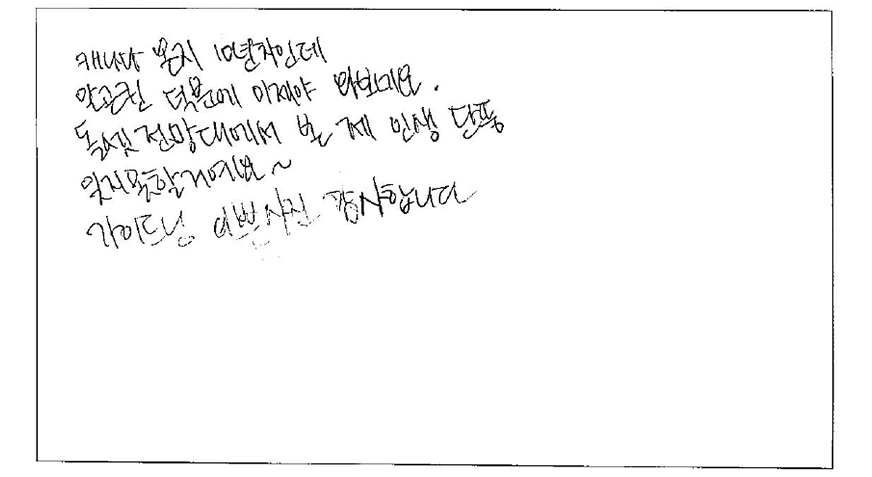 캐나다 온지 10년차인데
알곤퀸 덕분에 이제야 와보네요.
돌셋전망대에서 본 제 인생 단풍
잊지못할거예요~
가이드님 이쁜사진 감사합니다